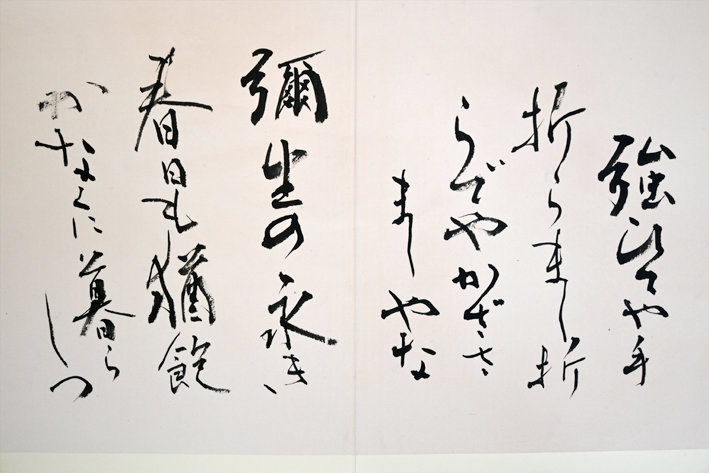 強ひてや手
折らまし折
らでやかざさ
ましやな
彌生の永き
春日も猶飽
かなくに暮ら
しつ